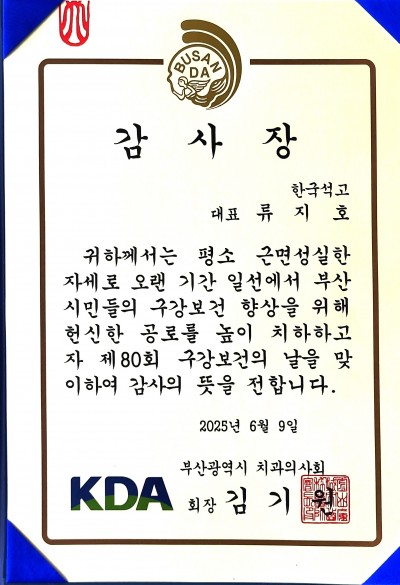 BUSAN
DA
감 사 장
한국석고
대표 류 지 호
귀하께서는 평소 근면성실한
자세로 오랜 기간 일선에서 부산
시민들의 구강보건 향상을 위해
헌신한 공로를 높이 치하하고
자 제80회 구강보건의 날을 맞
이하여 감사의 뜻을 전합니다.
2025년 6월 9일
부산광역시 치과의사회
KDA 회장 김 기 원